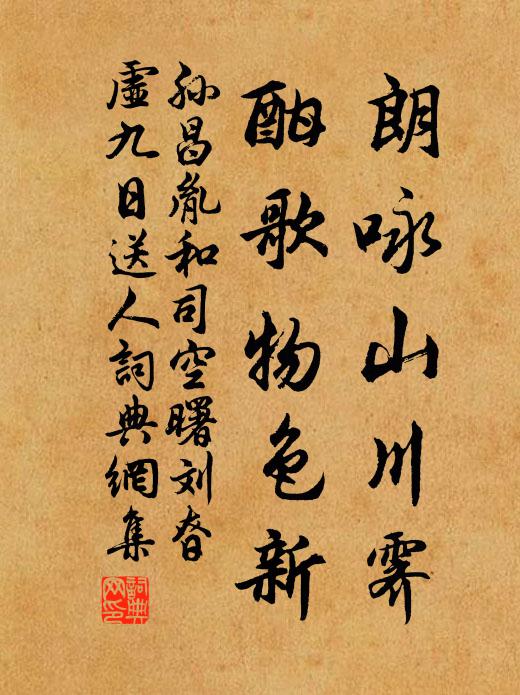 朗咏山川霁
酣歌物色新
孙昌胤和司空曙刘眘
虚九日送人词典網集
詞典网印